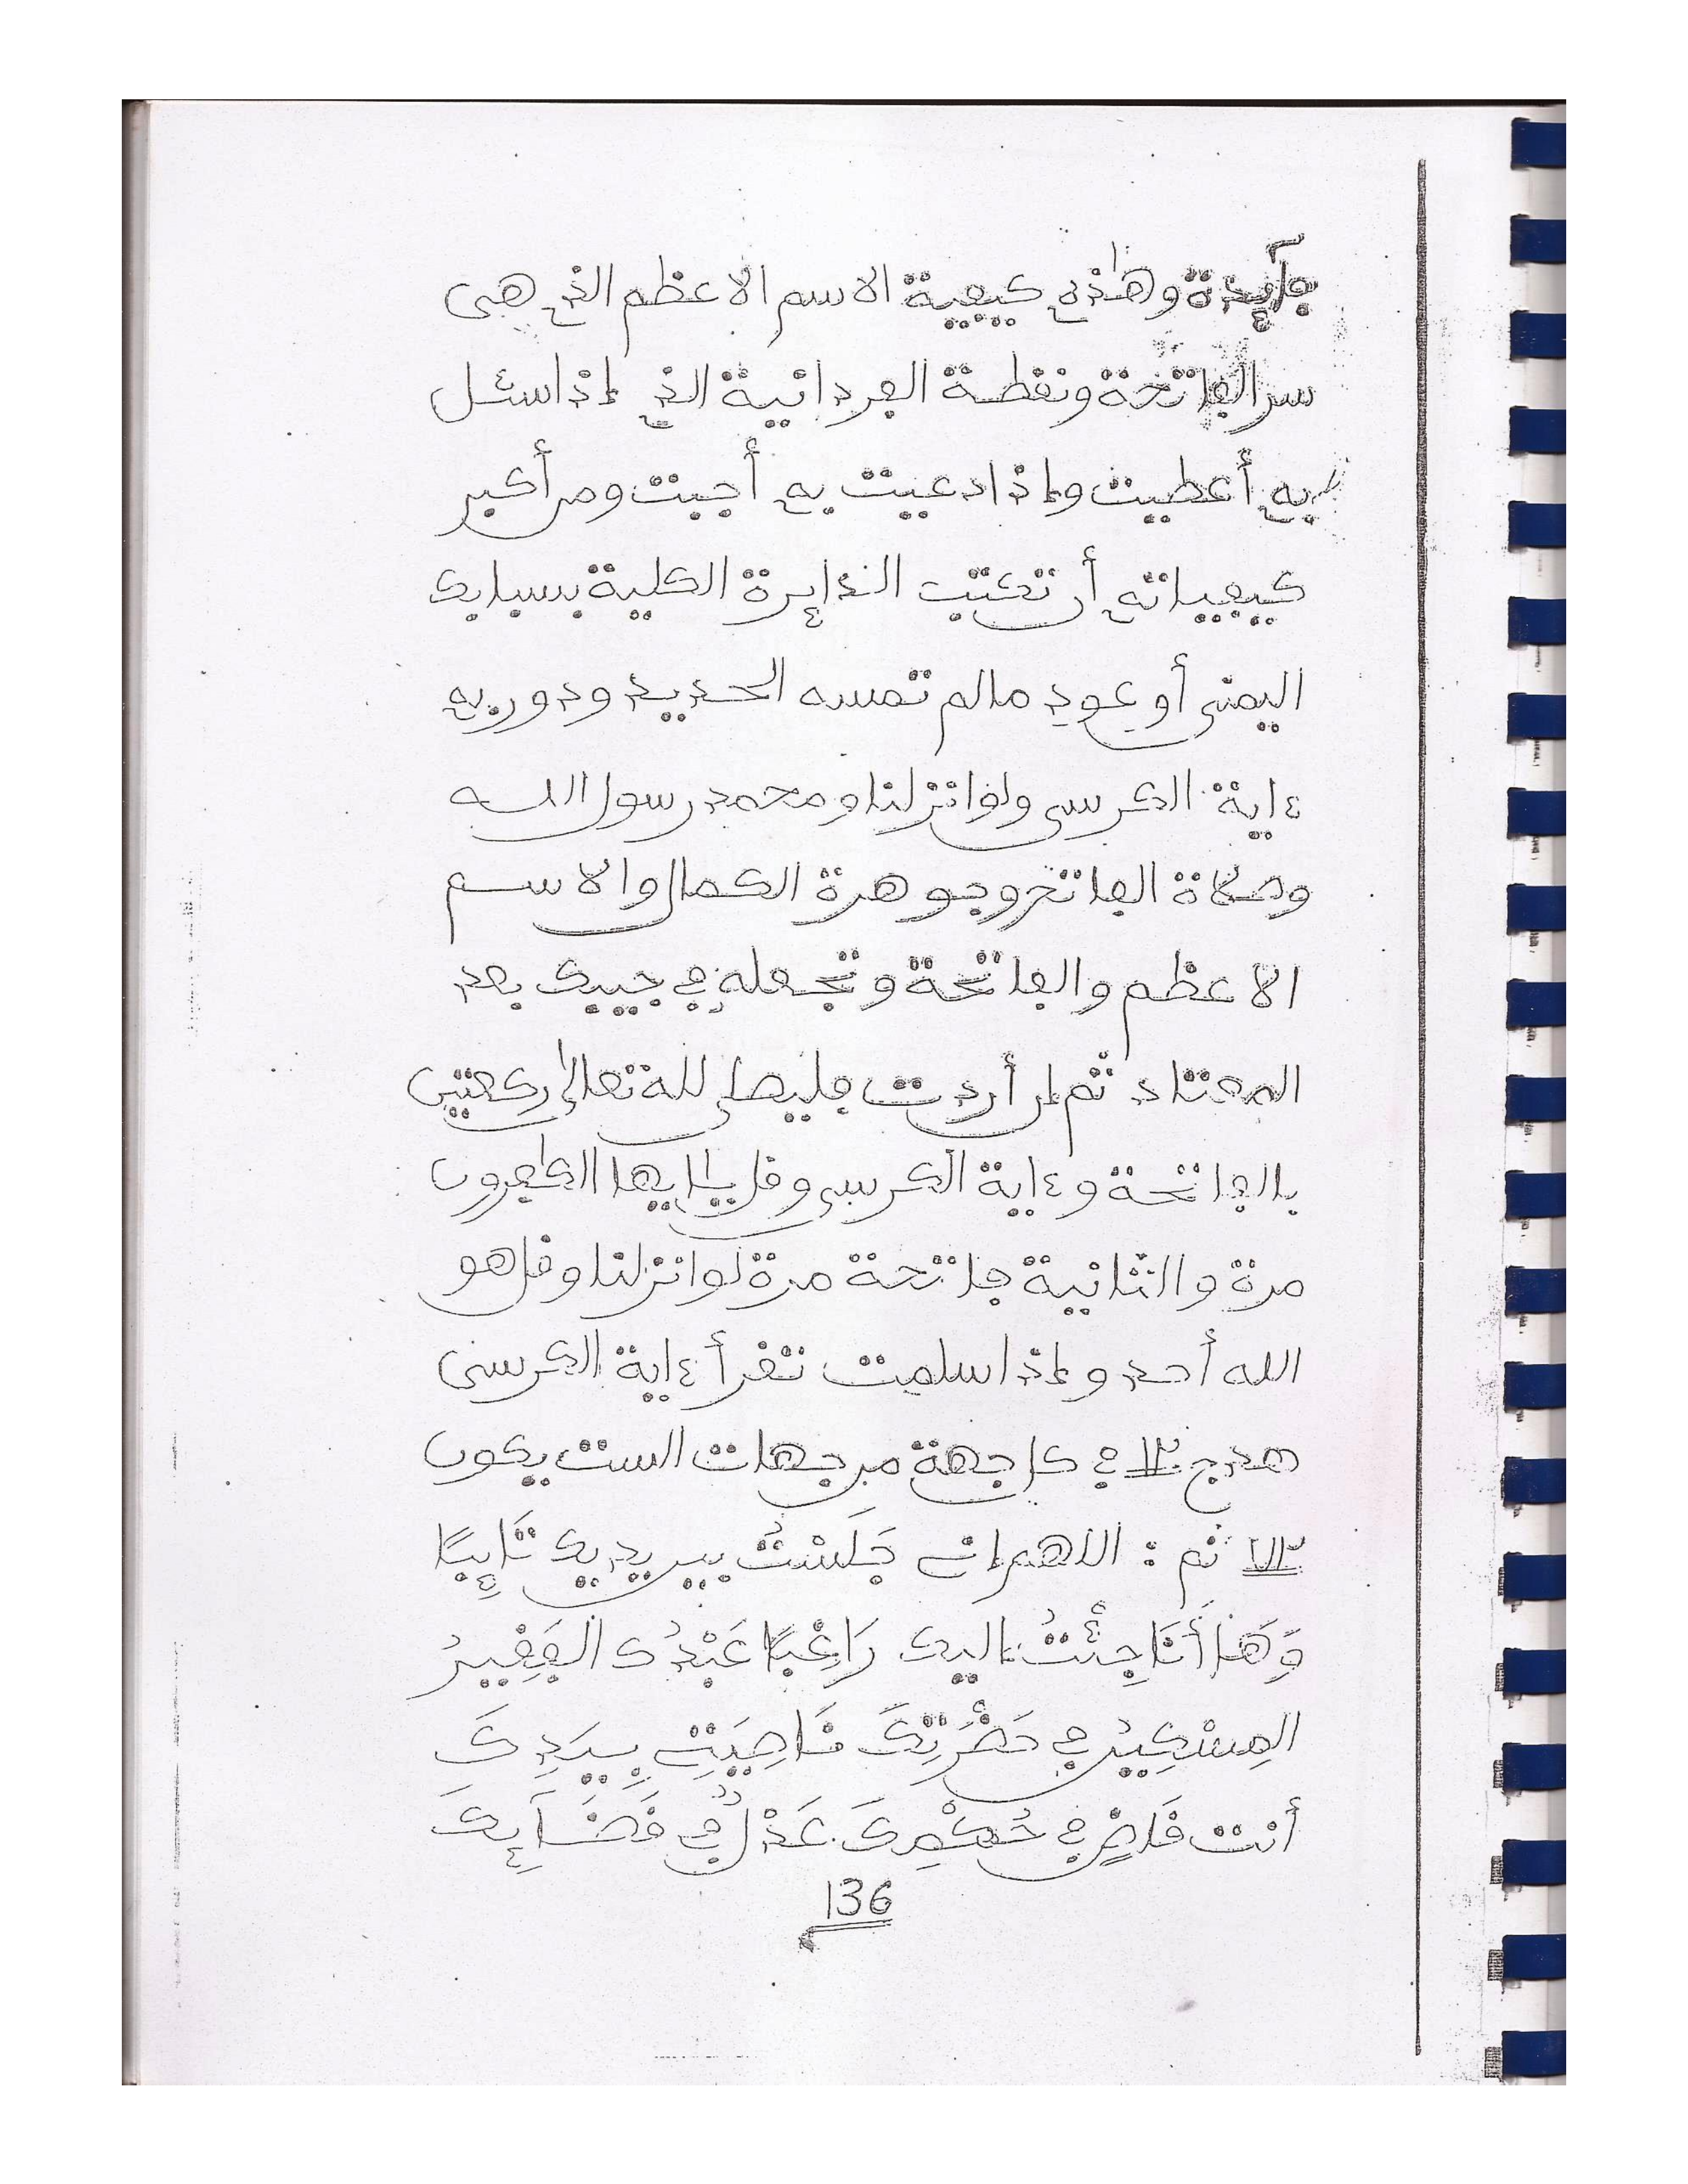 فآئدة وهذه كيفية الاسم الاعظم الذي هي
سر الفاتحة ونقطة الفردانية الذي إذا سئل
به أعطيت وإذا دعيت به أجبت ومن أكبر
كيفياته أن تكتب الدايرة الكلية بسبابك
اليمنى أو عود مالم تمسه الحديد ودور به
ءاية الكرسي ولو انزلنا ومحمد رسول الله
وصلاة الفاتح وجوهرة الكمال والاسم
الاعظم والفاتحة وتجعله في جيبك بعد
المعتاد ثم إن أردت فليصل لله تعالى ركعتين
بالفاتحة وءاية الكرسي وقل يأيها الكفرون
مرة والثانية فاتحة مرة لو انزلنا وقل هو
الله أحد وإذا سلمت تقرأ ءاية الكرسي
١٢ في كل جهة من جهات الست يكون
٧٢ ثم : اللهم إني جَلَسْتُ بين يديك تَائِبًا
وَهَا أَنَا جِئْتُ اليك رَاغِبًا عَبْدُكَ الفَقِيرُ
المِسْكِينُ في حَضْرَتِكَ نَاصِيَتِي بِيَدِكَ
أنت قَاضٍ في حُكْمِكَ عَدْلٌ في قَضَآئِكَ
136